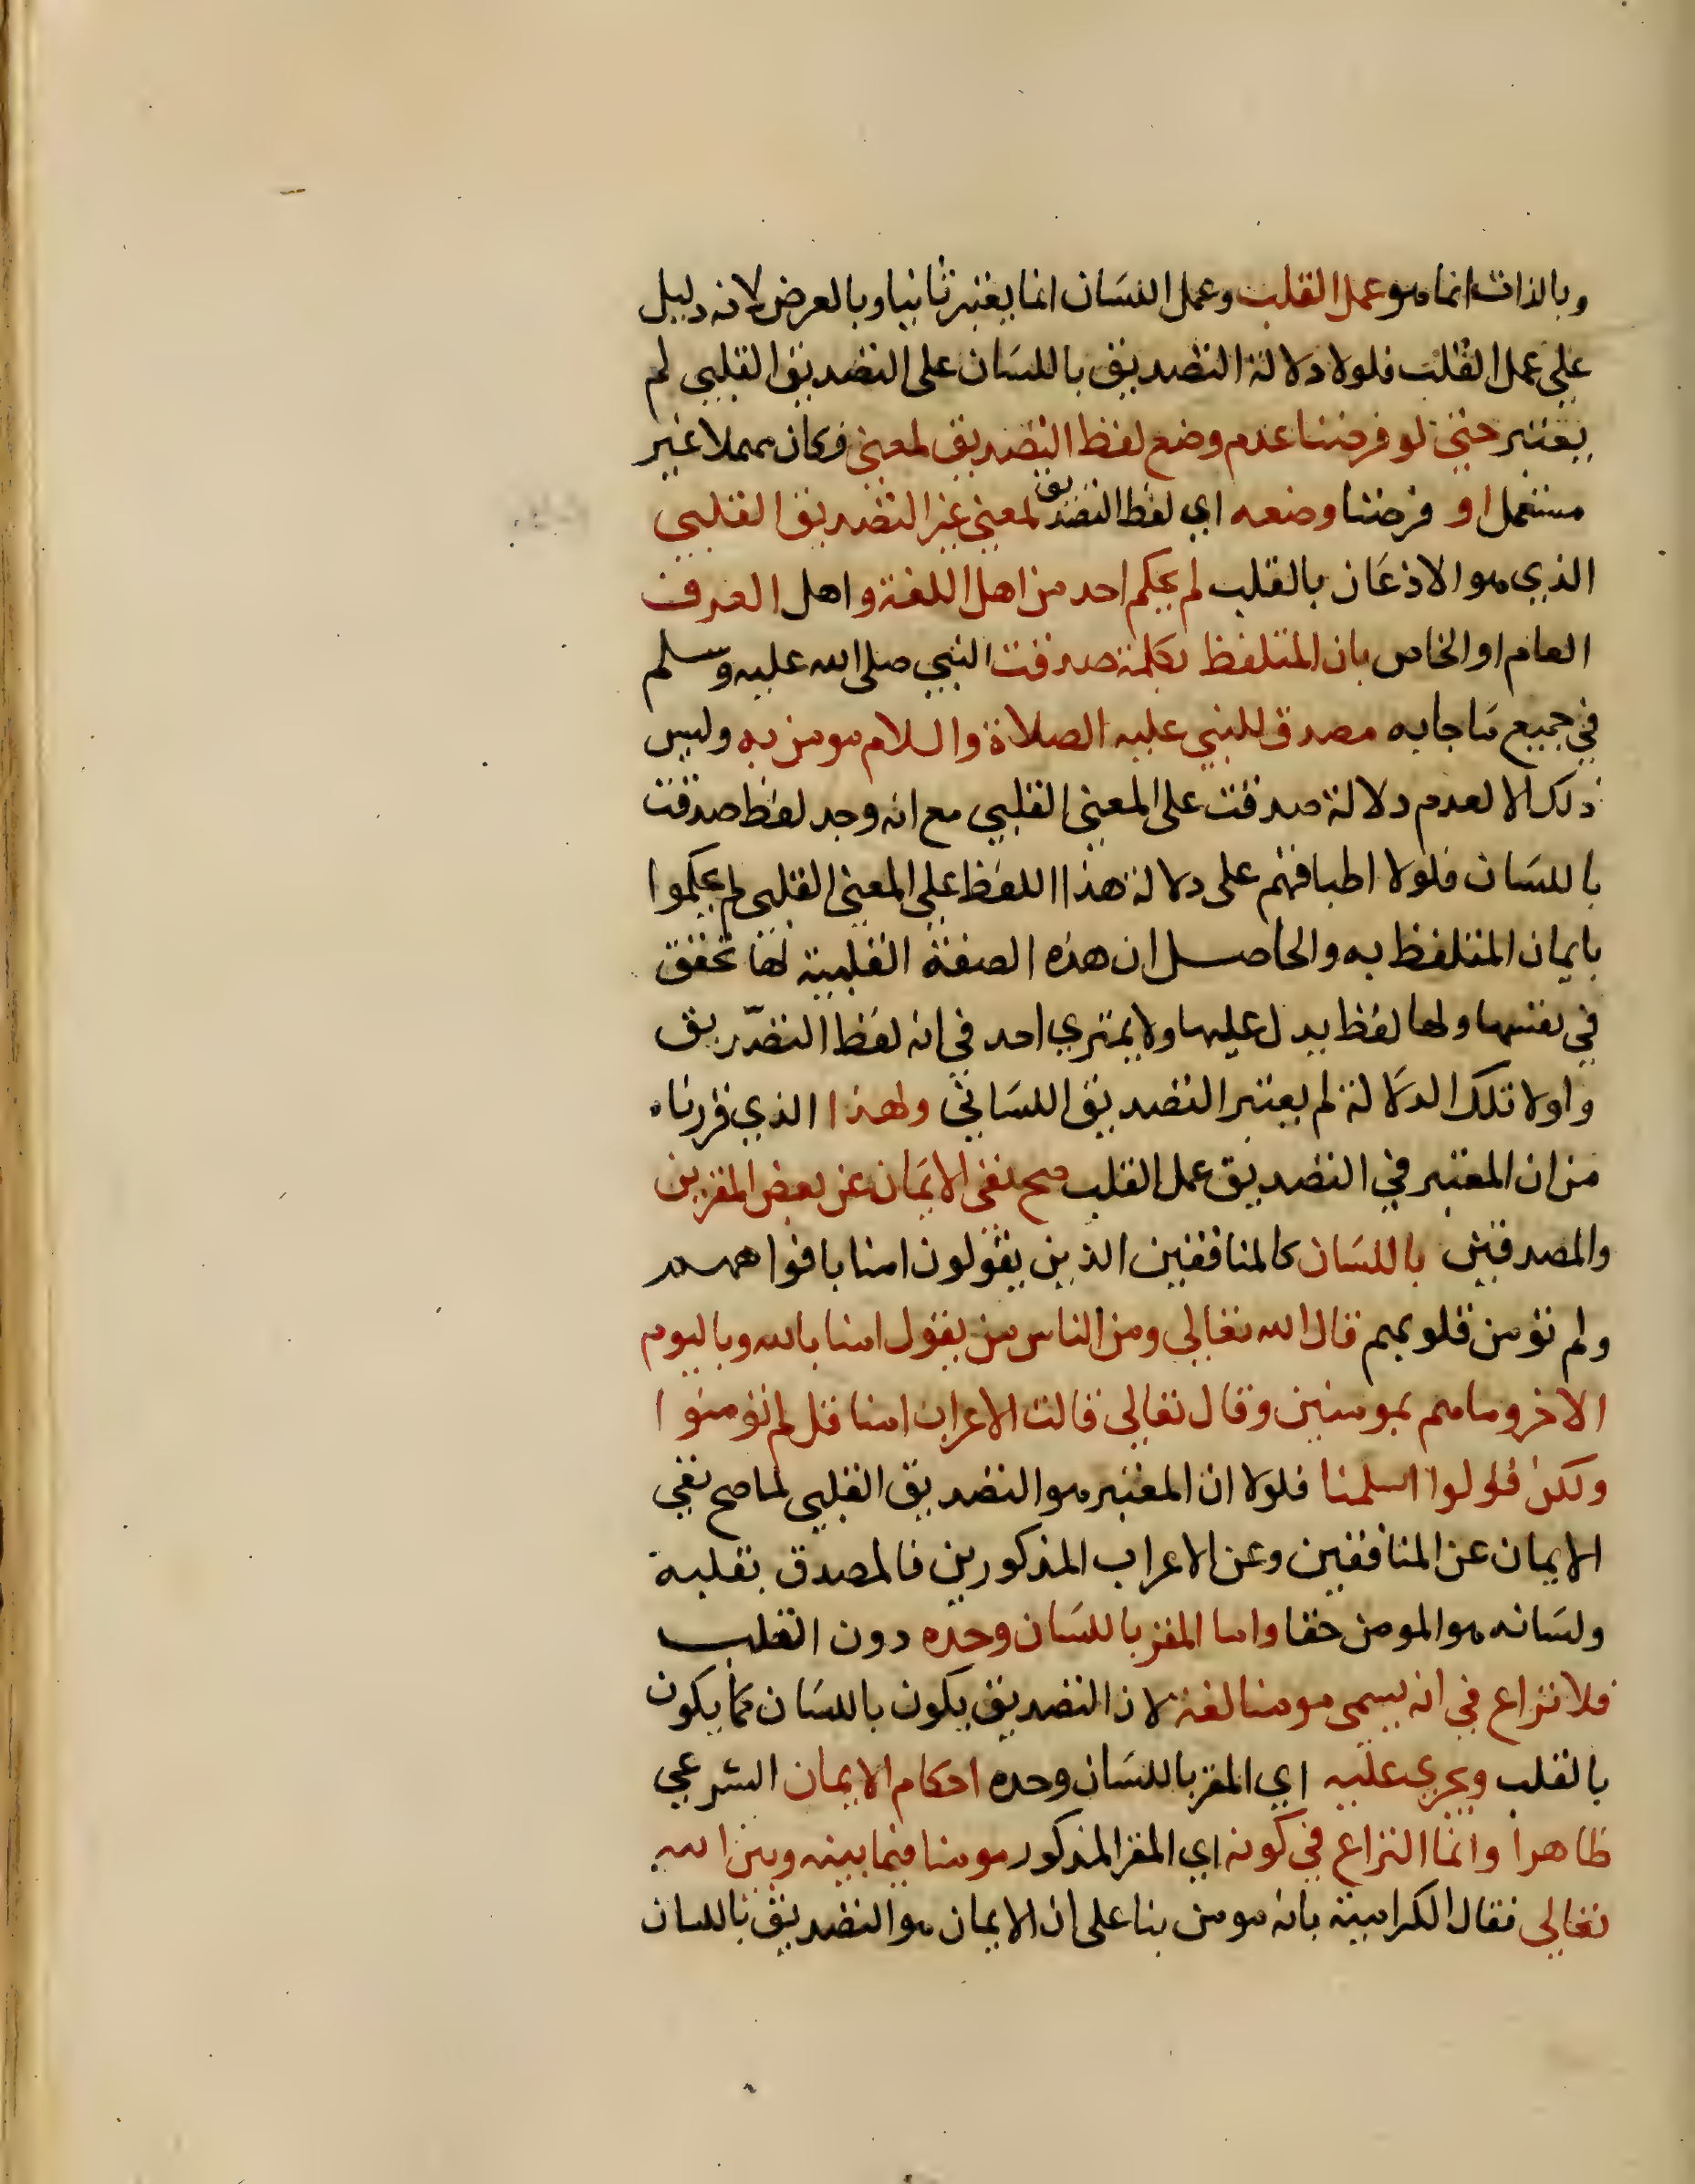 وبالذات انما هو عمل القلب وعمل اللسان انما يعتبر ثانيا وبالعرض لانه دليل
علي عمل القلب فلولا دلالة التصديق باللسان على التصديق القلبي لم
يعتبر حتي لو فرضنا عدم وضع لفظ التصديق لمعني فكان مهملا غير
مستعمل او فرضنا وضعه اي لفظ التصديق لمعني غير التصديق القلبي
الذي هو الاذعان بالقلب لم يحكم احد من اهل اللغة واهل العرف
العام او الخاص بان المتلفظ بكلمة صدقت النبي صلى الله عليه وسلم
في جميع ما جا به مصدق للنبي عليه الصلاة والسلام مومن به وليس
ذلك الا لعدم دلالة صدقت على المعني القلبي مع انه وجد لفظ صدقت
باللسان فلولا اطباقهم على دلالة هذا اللفظ علي المعني القلبي لم يحكموا
بايمان المتلفظ به والحاصل ان هذه الصفة القلبية لها تحقق
في نفسها ولها لفظ يدل عليها ولا يمتري احد في انه لفظ التصديق
واولا تلك الدلالة لم يعتبر التصديق اللساني ولهذا الذي قررناه
من ان المعتبر في التصديق عمل القلب صح نفي الايمان عن بعض المقرين
والمصدقين باللسان كالمنافقين الذين يقولون امنا بافواههم
ولم تؤمن قلوبهم قال الله تعالي ومن الناس من يقول امنا بالله وباليوم
الاخر وما هم بمومنين وقال تعالي قالت الاعراب امنا قل لم تؤمنوا
ولكن قولوا اسلمنا فلولا ان المعتبر هو التصديق القلبي لما صح نفي
الايمان عن المنافقين وعن الاعراب المذكورين فالمصدق بقلبه
ولسانه هو المومن حقا واما المقر باللسان وحده دون القلب
فلا نزاع في انه يسمى مومنا لغة لان التصديق يكون باللسان كما يكون
بالقلب ويجري عليه اي المقر باللسان وحده احكام الايمان الشرعي
ظاهرا وانما النزاع في كونه اي المقر المذكور مومنا فيما بينه وبين الله
تعالي فقال الكرامية بانه مومن بنا على ان الايمان هو التصديق باللسان